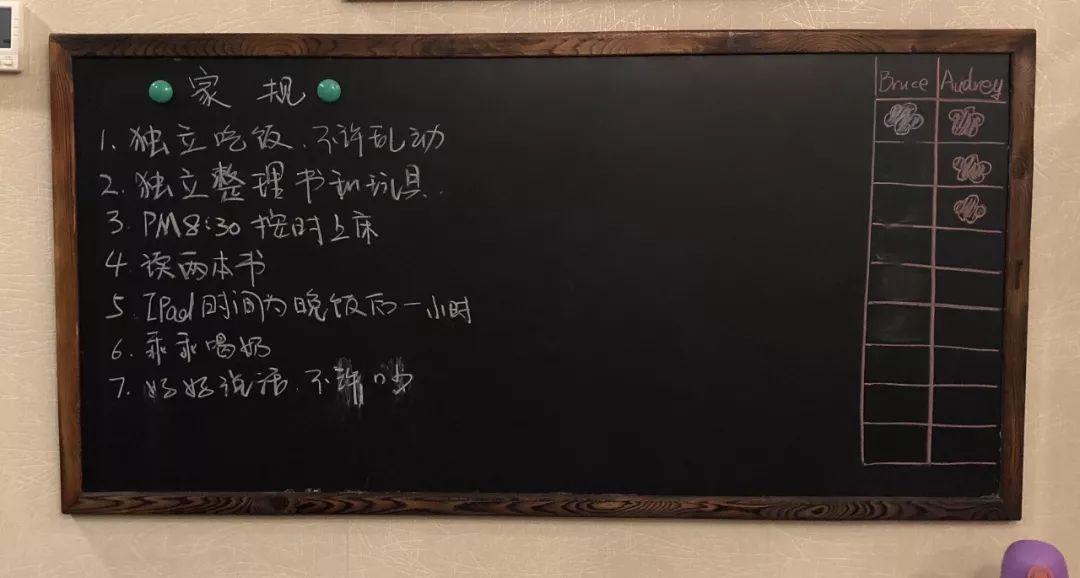 家规
1. 独立吃饭、不许乱动
2. 独立整理书和玩具.
3. PM8:30 按时上床
4. 读两本书
5. IPad时间为晚饭后一小时
6. 乖乖喝奶
7. 好好说话、不许
Bruce Audrey